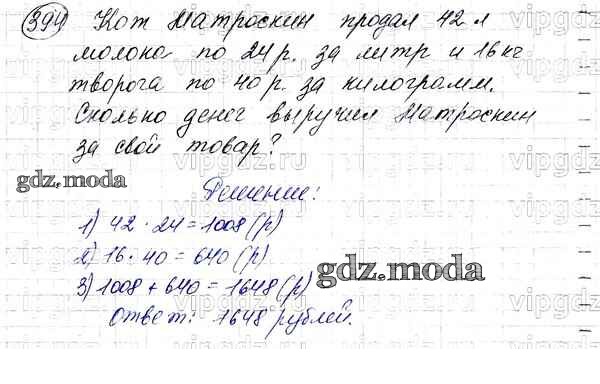 394 Кот Матроскин продал 42 л
молока по 24 р. за литр и 16 кг
творога по 40 р. за килограмм.
Сколько денег выручил Матроскин
за свой товар?
gdz.moda
Решение:
1) 42 · 24 = 1008 (р)
2) 16 · 40 = 640 (р)
3) 1008 + 640 = 1648 (р)
gdz.moda
Ответ: 1648 рублей.